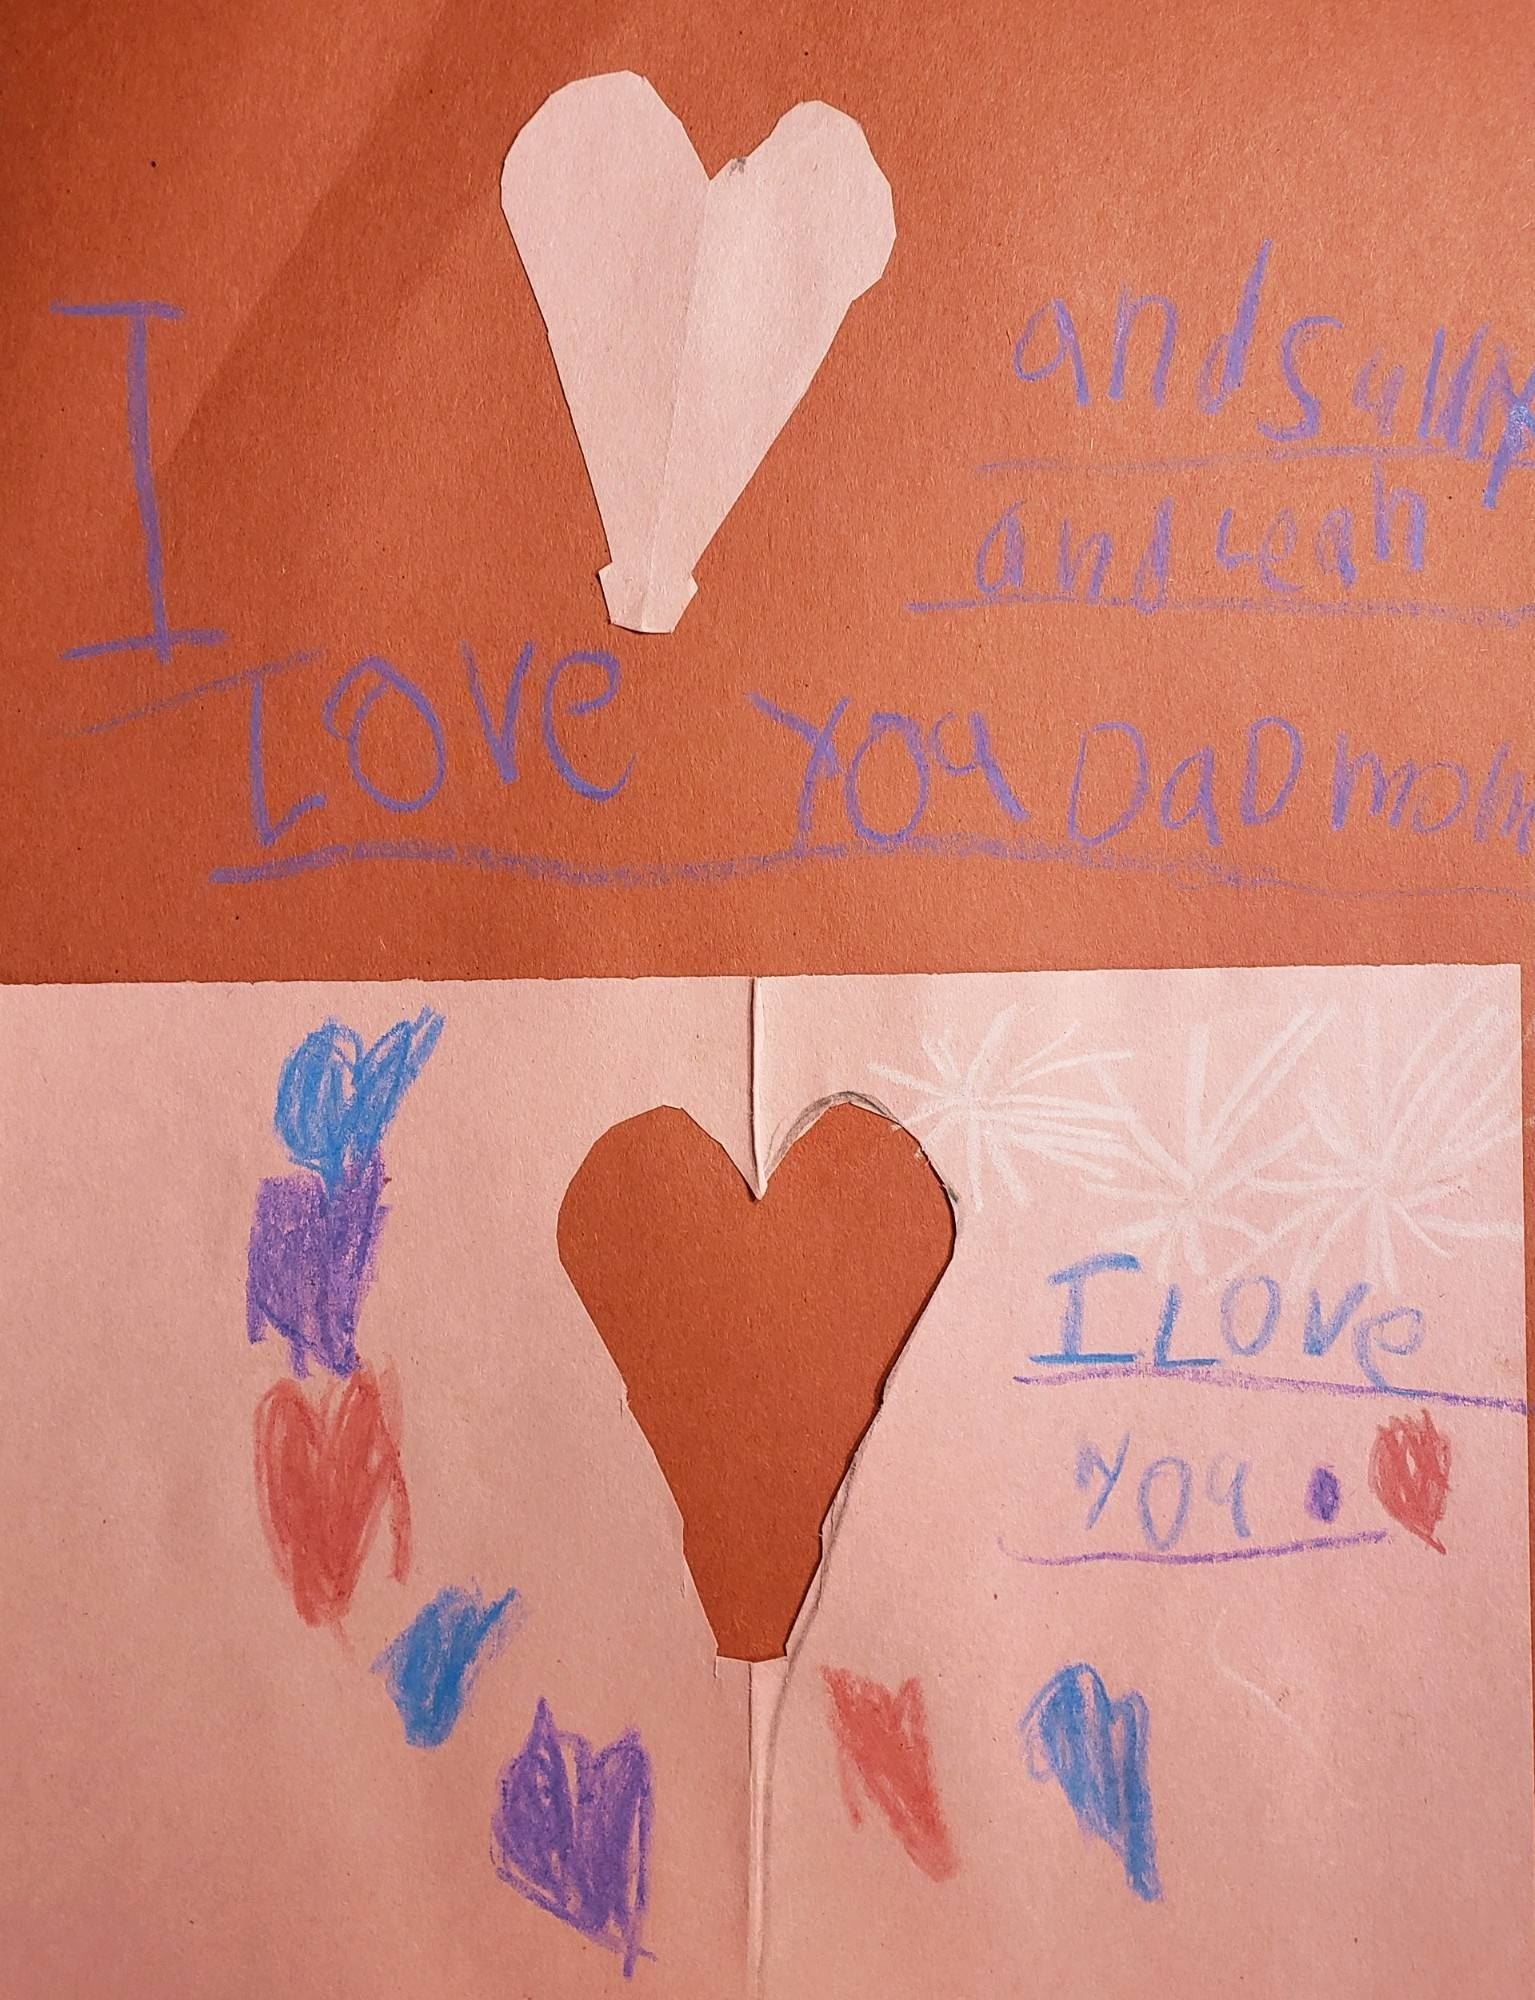 I
and Sally
and Leah
Love You DaD mom
I Love
You.